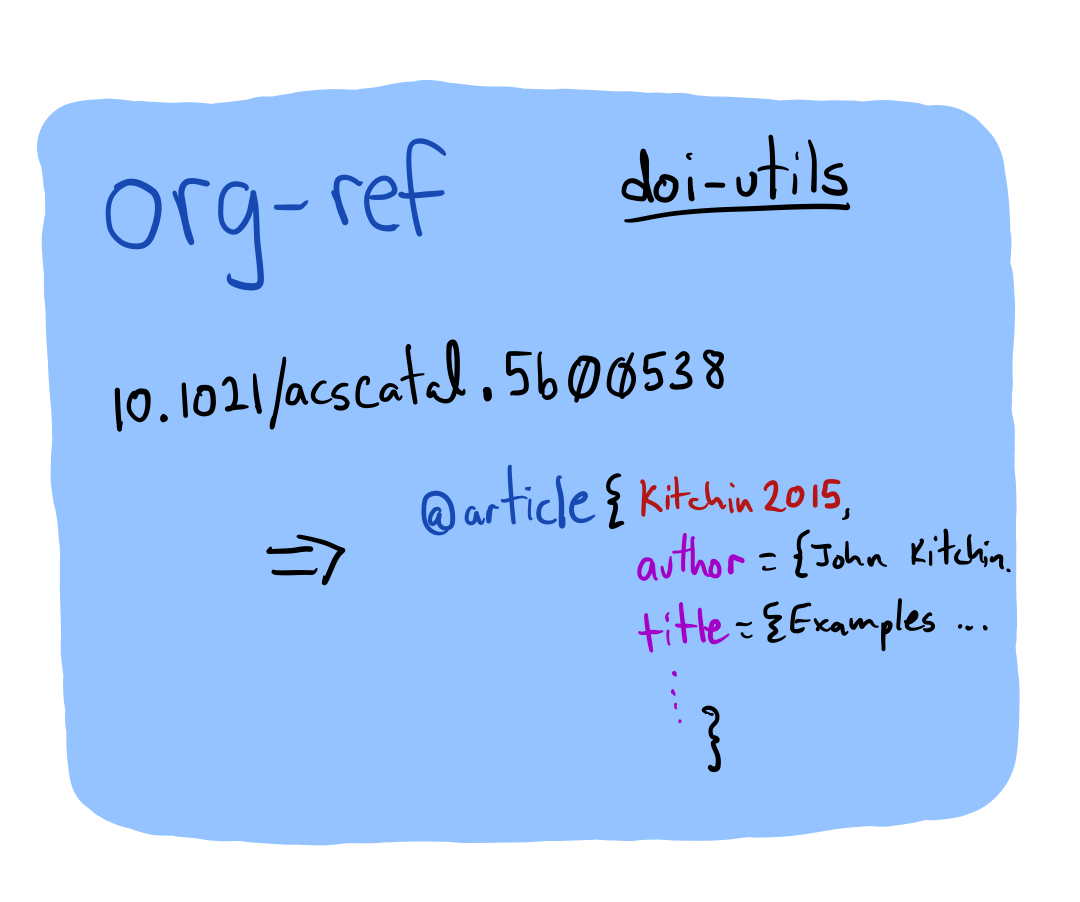 org-ref
doi-utils
10.1021/acscatal.5b00538
@article{Kitchin2015,
=>
author = {John Kitchin.
title = {Examples ...
}